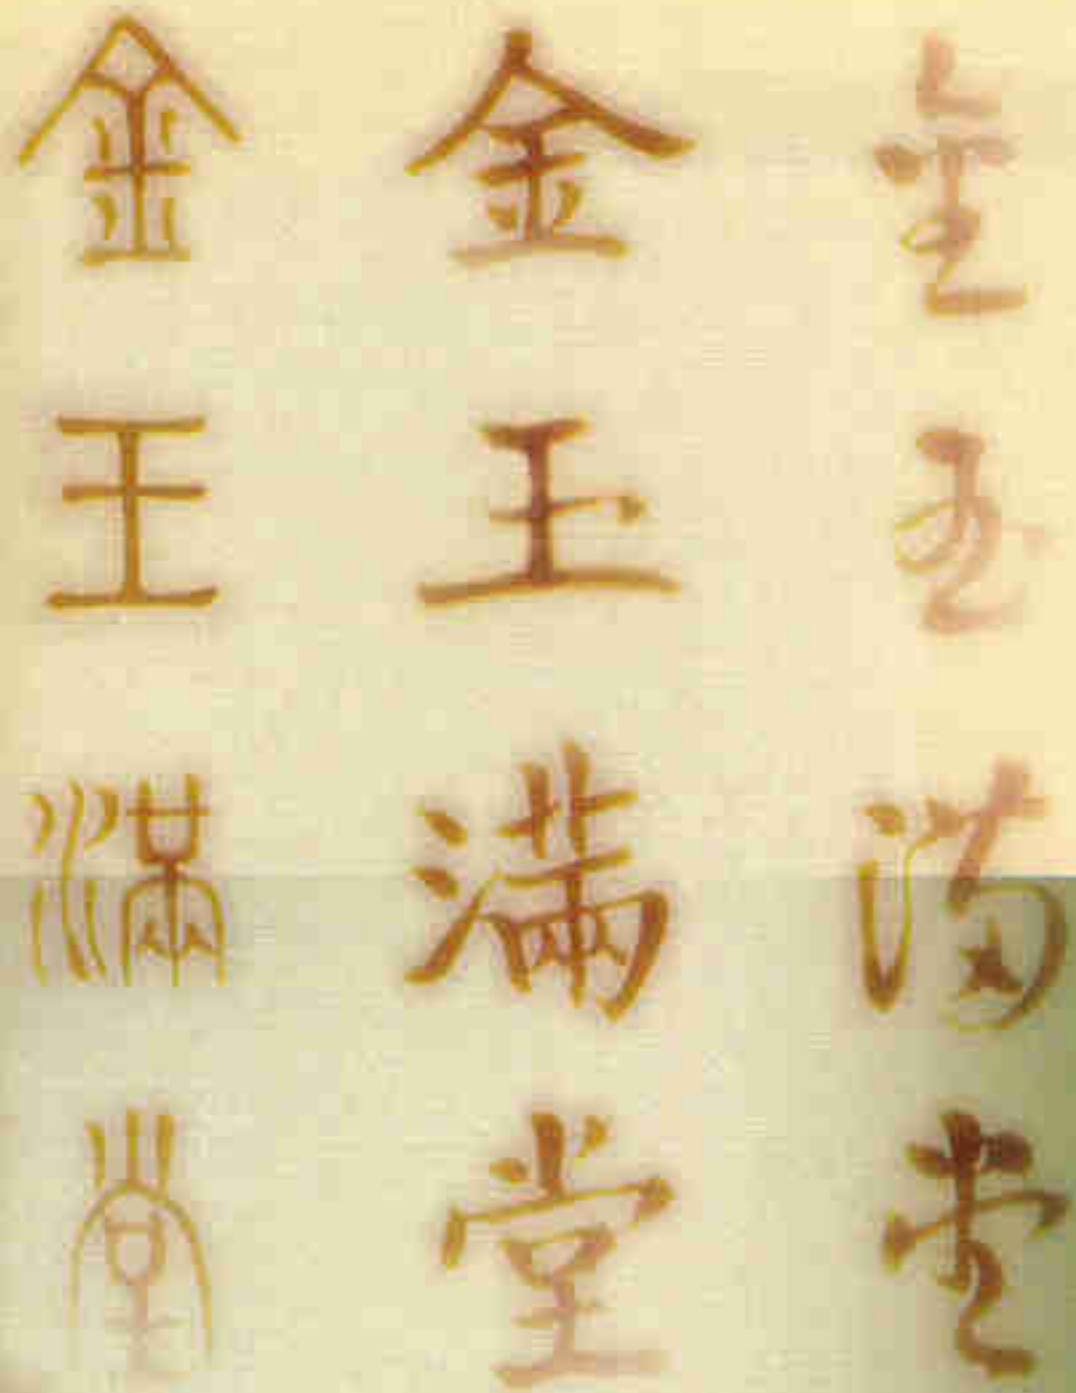 金玉滿堂
金玉滿堂
金玉滿堂